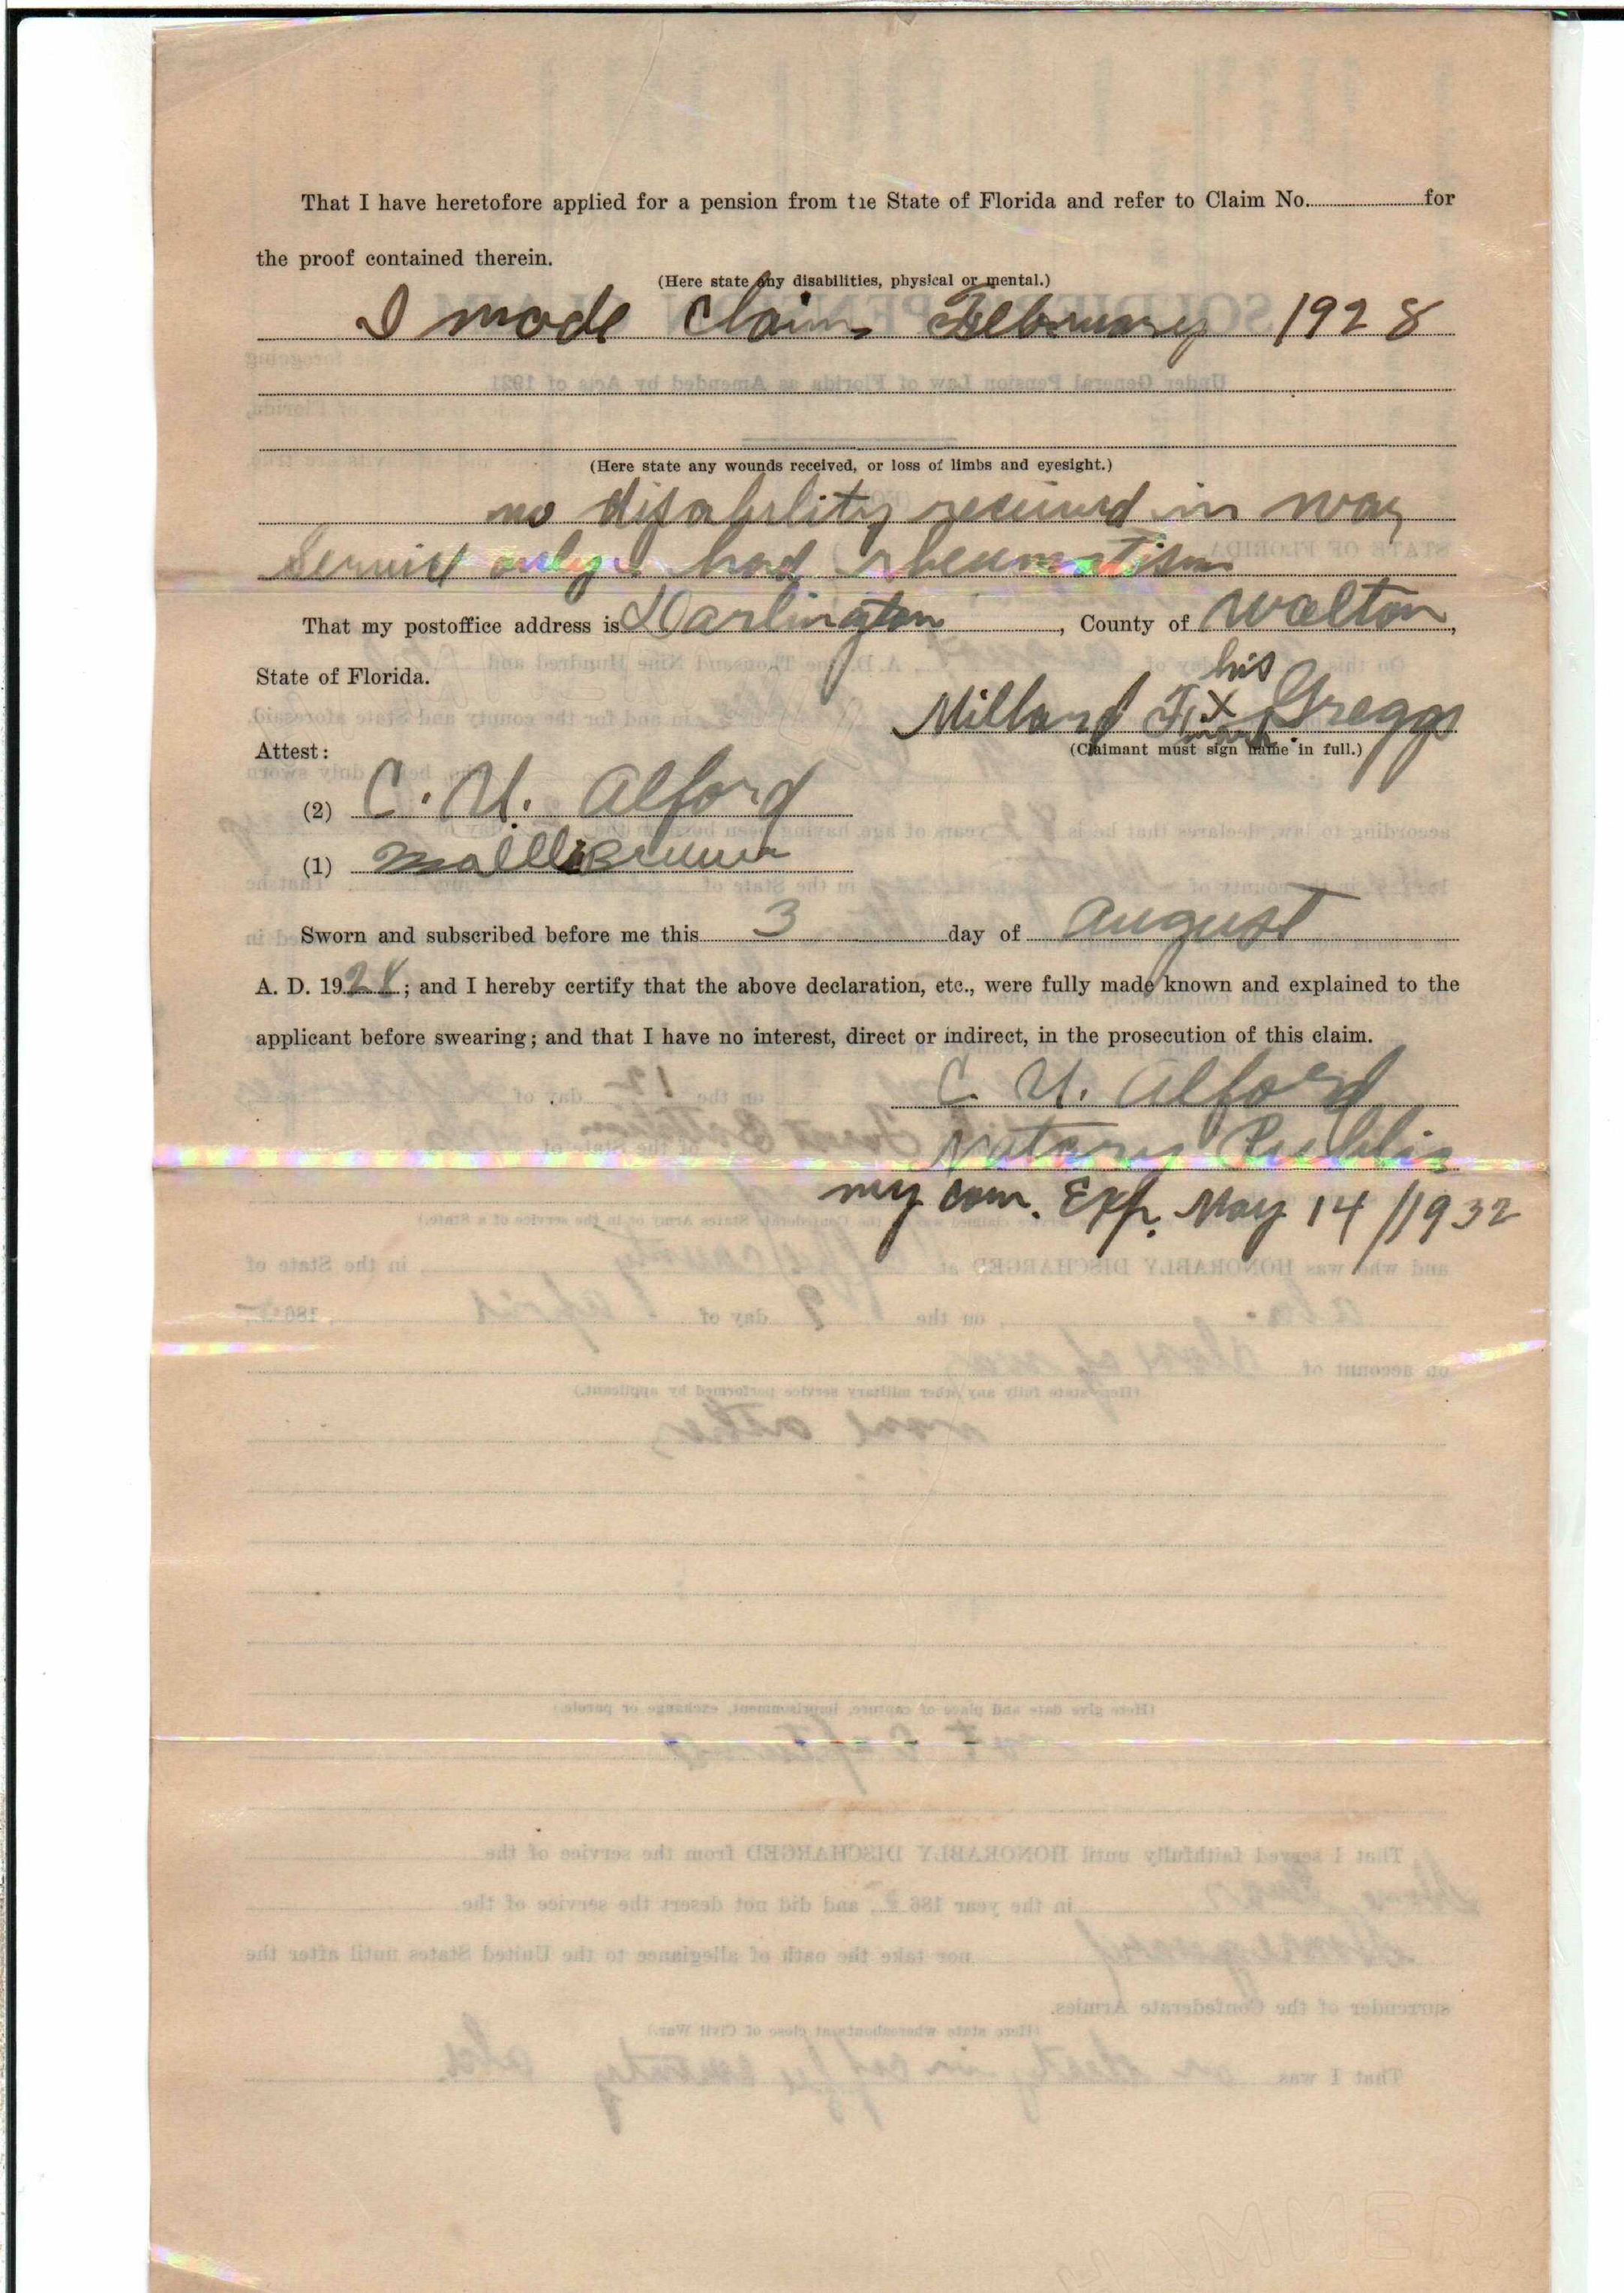 That I have heretofore applied for a pension from the State of Florida and refer to Claim No. for
the proof contained therein.
(Here state any disabilities, physical or mental.)
I made claim February 1928
(Here state any wounds received, or loss of limbs and eyesight.)
no disability received in war
service only I had rheumatism
That my postoffice address is Darlington, County of Walton,
State of Florida.
his
Millard F. X Greggs
mark
Attest: (Claimant must sign name in full.)
(2) C. U. Alford
(1)
Sworn and subscribed before me this 3 day of August
A. D. 1928; and I hereby certify that the above declaration, etc., were fully made known and explained to the
applicant before swearing; and that I have no interest, direct or indirect, in the prosecution of this claim.
C. U. Alford
Notary Public
my com. Exp. May 14/1932